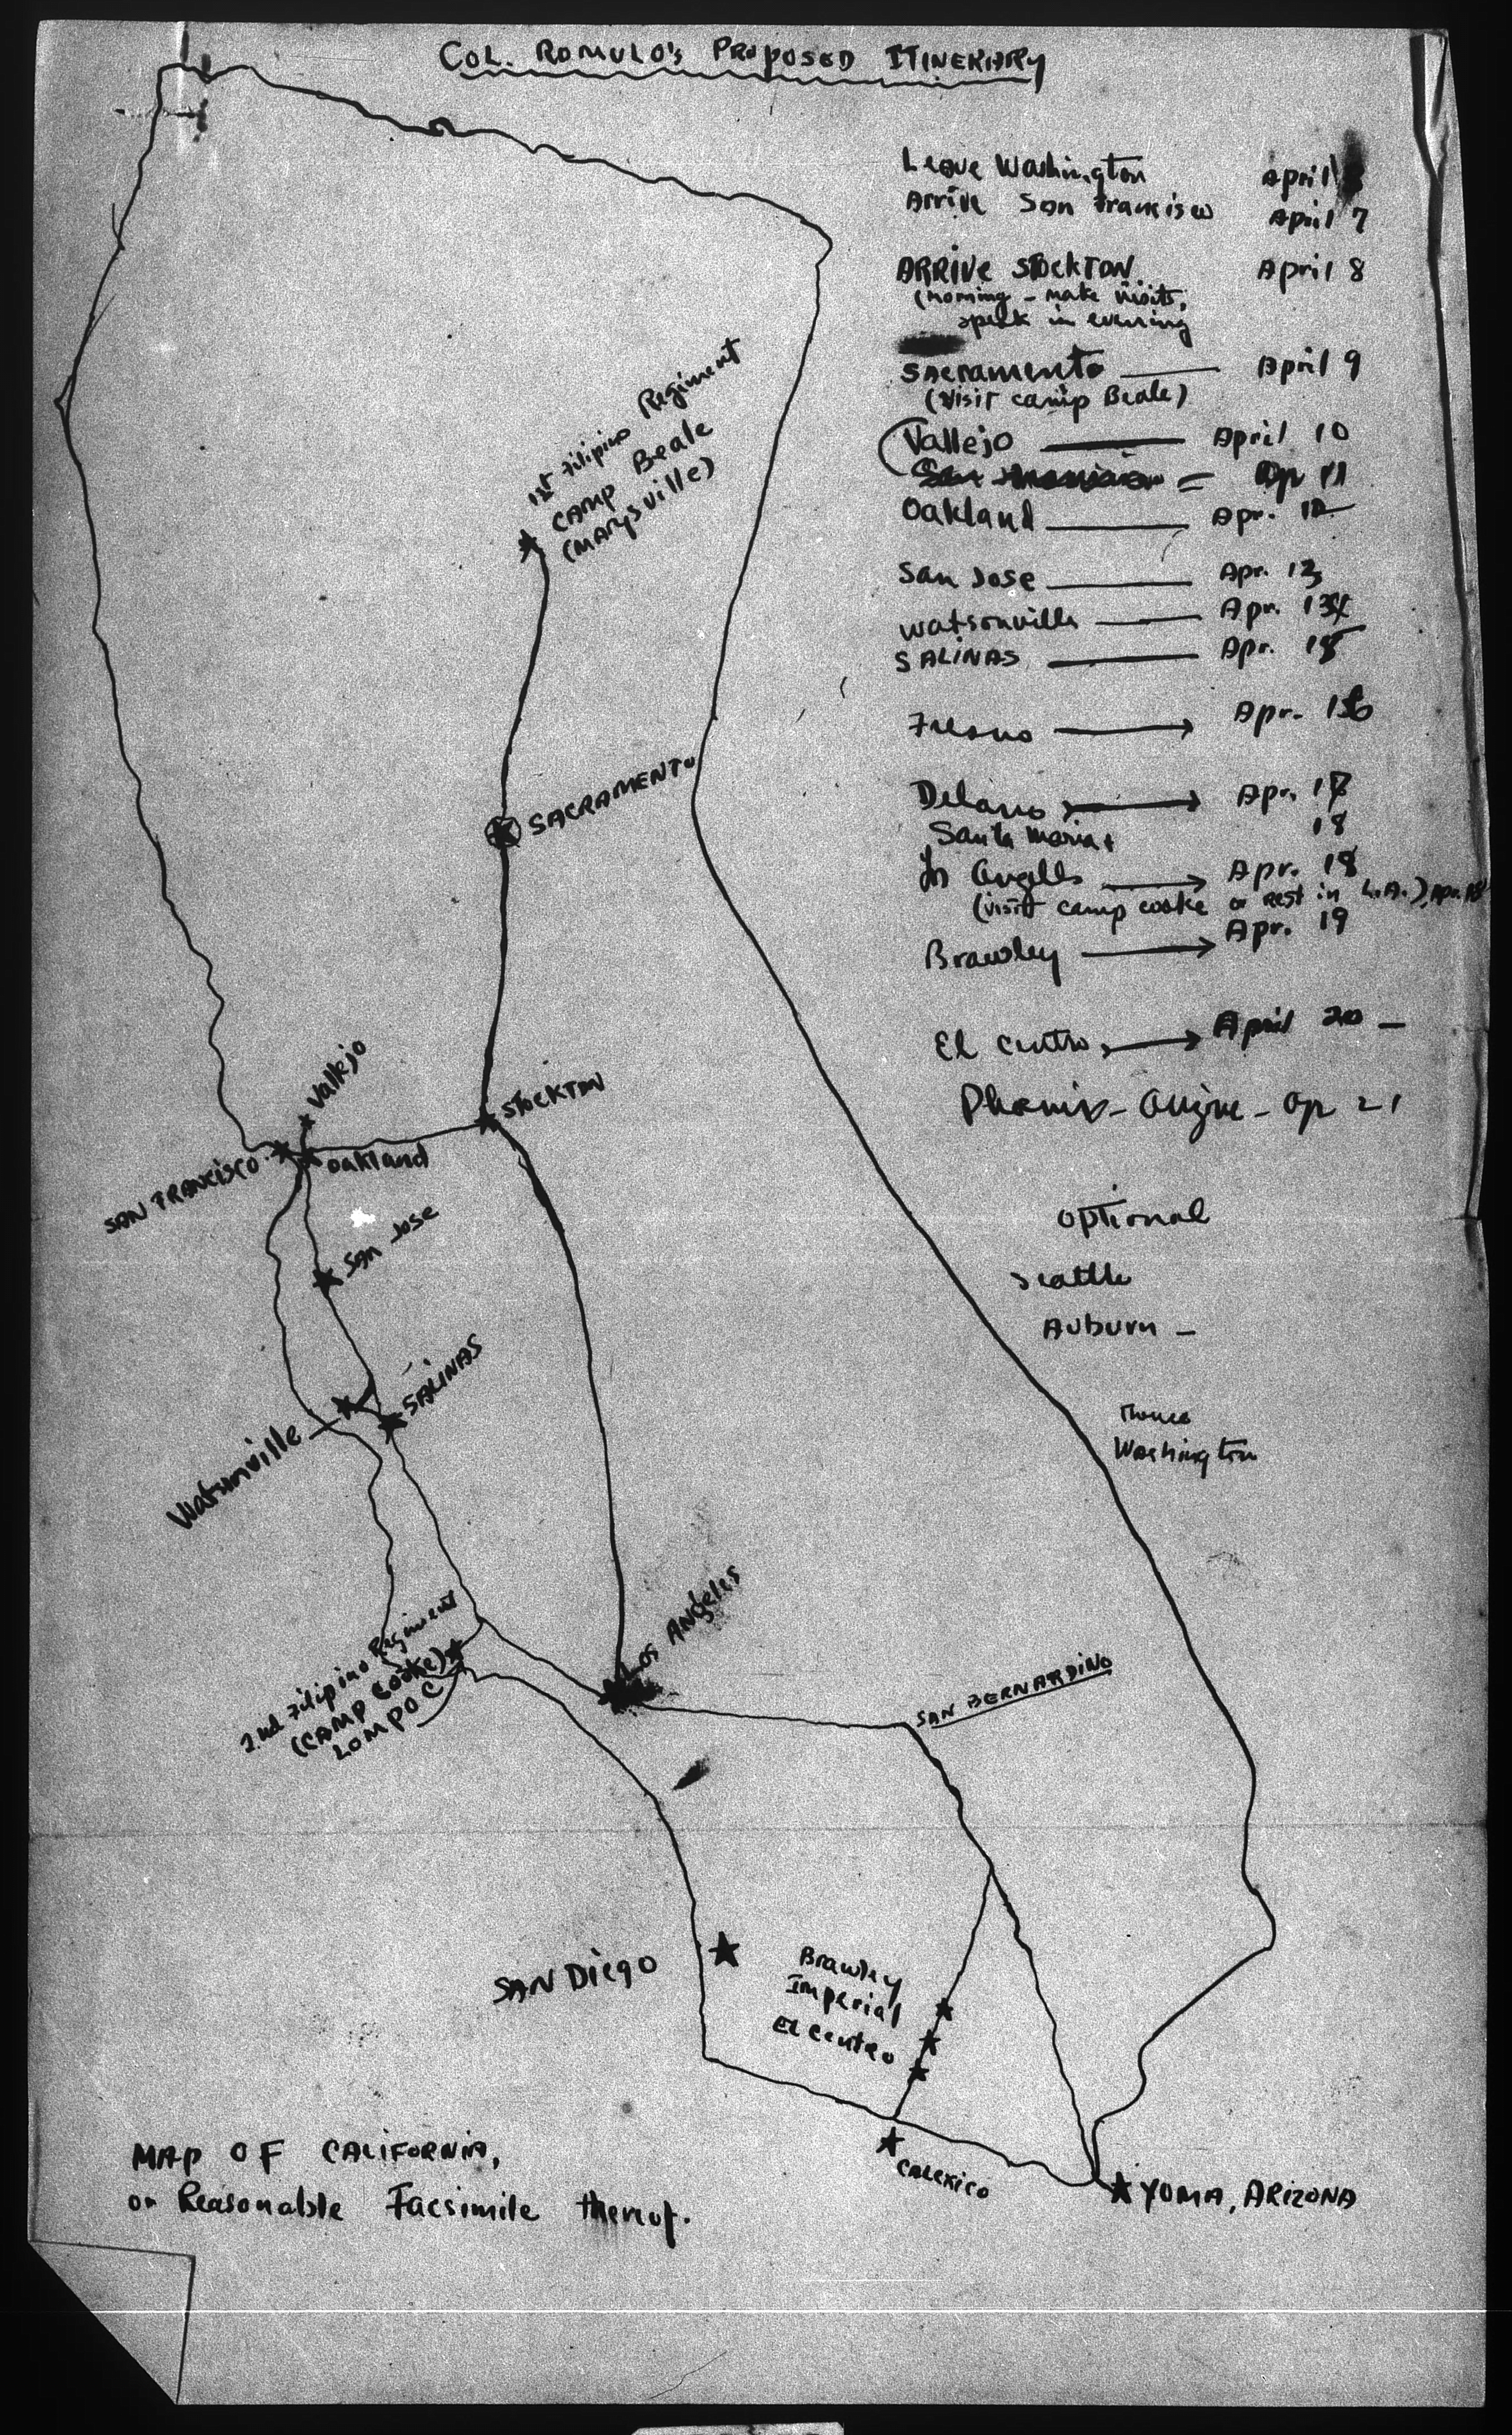 COL. ROMULO'S PROPOSED ITINERARY
Leave Washington April
Arrive San Francisco April 7
ARRIVE STOCKTON April 8
(Morning - make visits,
speak in evening
Sacramento April 9
(visit camp Beale)
Vallejo April 10
Ap 11
Oakland Apr. 12
San Jose Apr. 13
Watsonville Apr. 14
SALINAS Apr. 15
Fresno Apr. 16
Delano Apr. 17
Santa Maria 18
Los Angeles Apr. 18
(visit camp cooke or rest in L.A.), Apr. 18
Brawley Apr. 19
El Centro April 20 -
Phoenix - - Ap 21
optional
Seattle
Auburn -
Thence
Washington
1st Filipino Regiment
CAMP Beale
(MARYSVILLE)
SACRAMENTO
Vallejo
STOCKTON
SAN FRANCISCO
Oakland
SAN JOSE
SALINAS
Watsonville
2nd Filipino Regiment
(CAMP COOKE)
LOMPOC
LOS ANGELES
SAN BERNARDINO
SAN DIEGO
Brawley
Imperial
El Centro
CALEXICO
YUMA, ARIZONA
MAP OF CALIFORNIA,
or Reasonable Facsimile thereof.